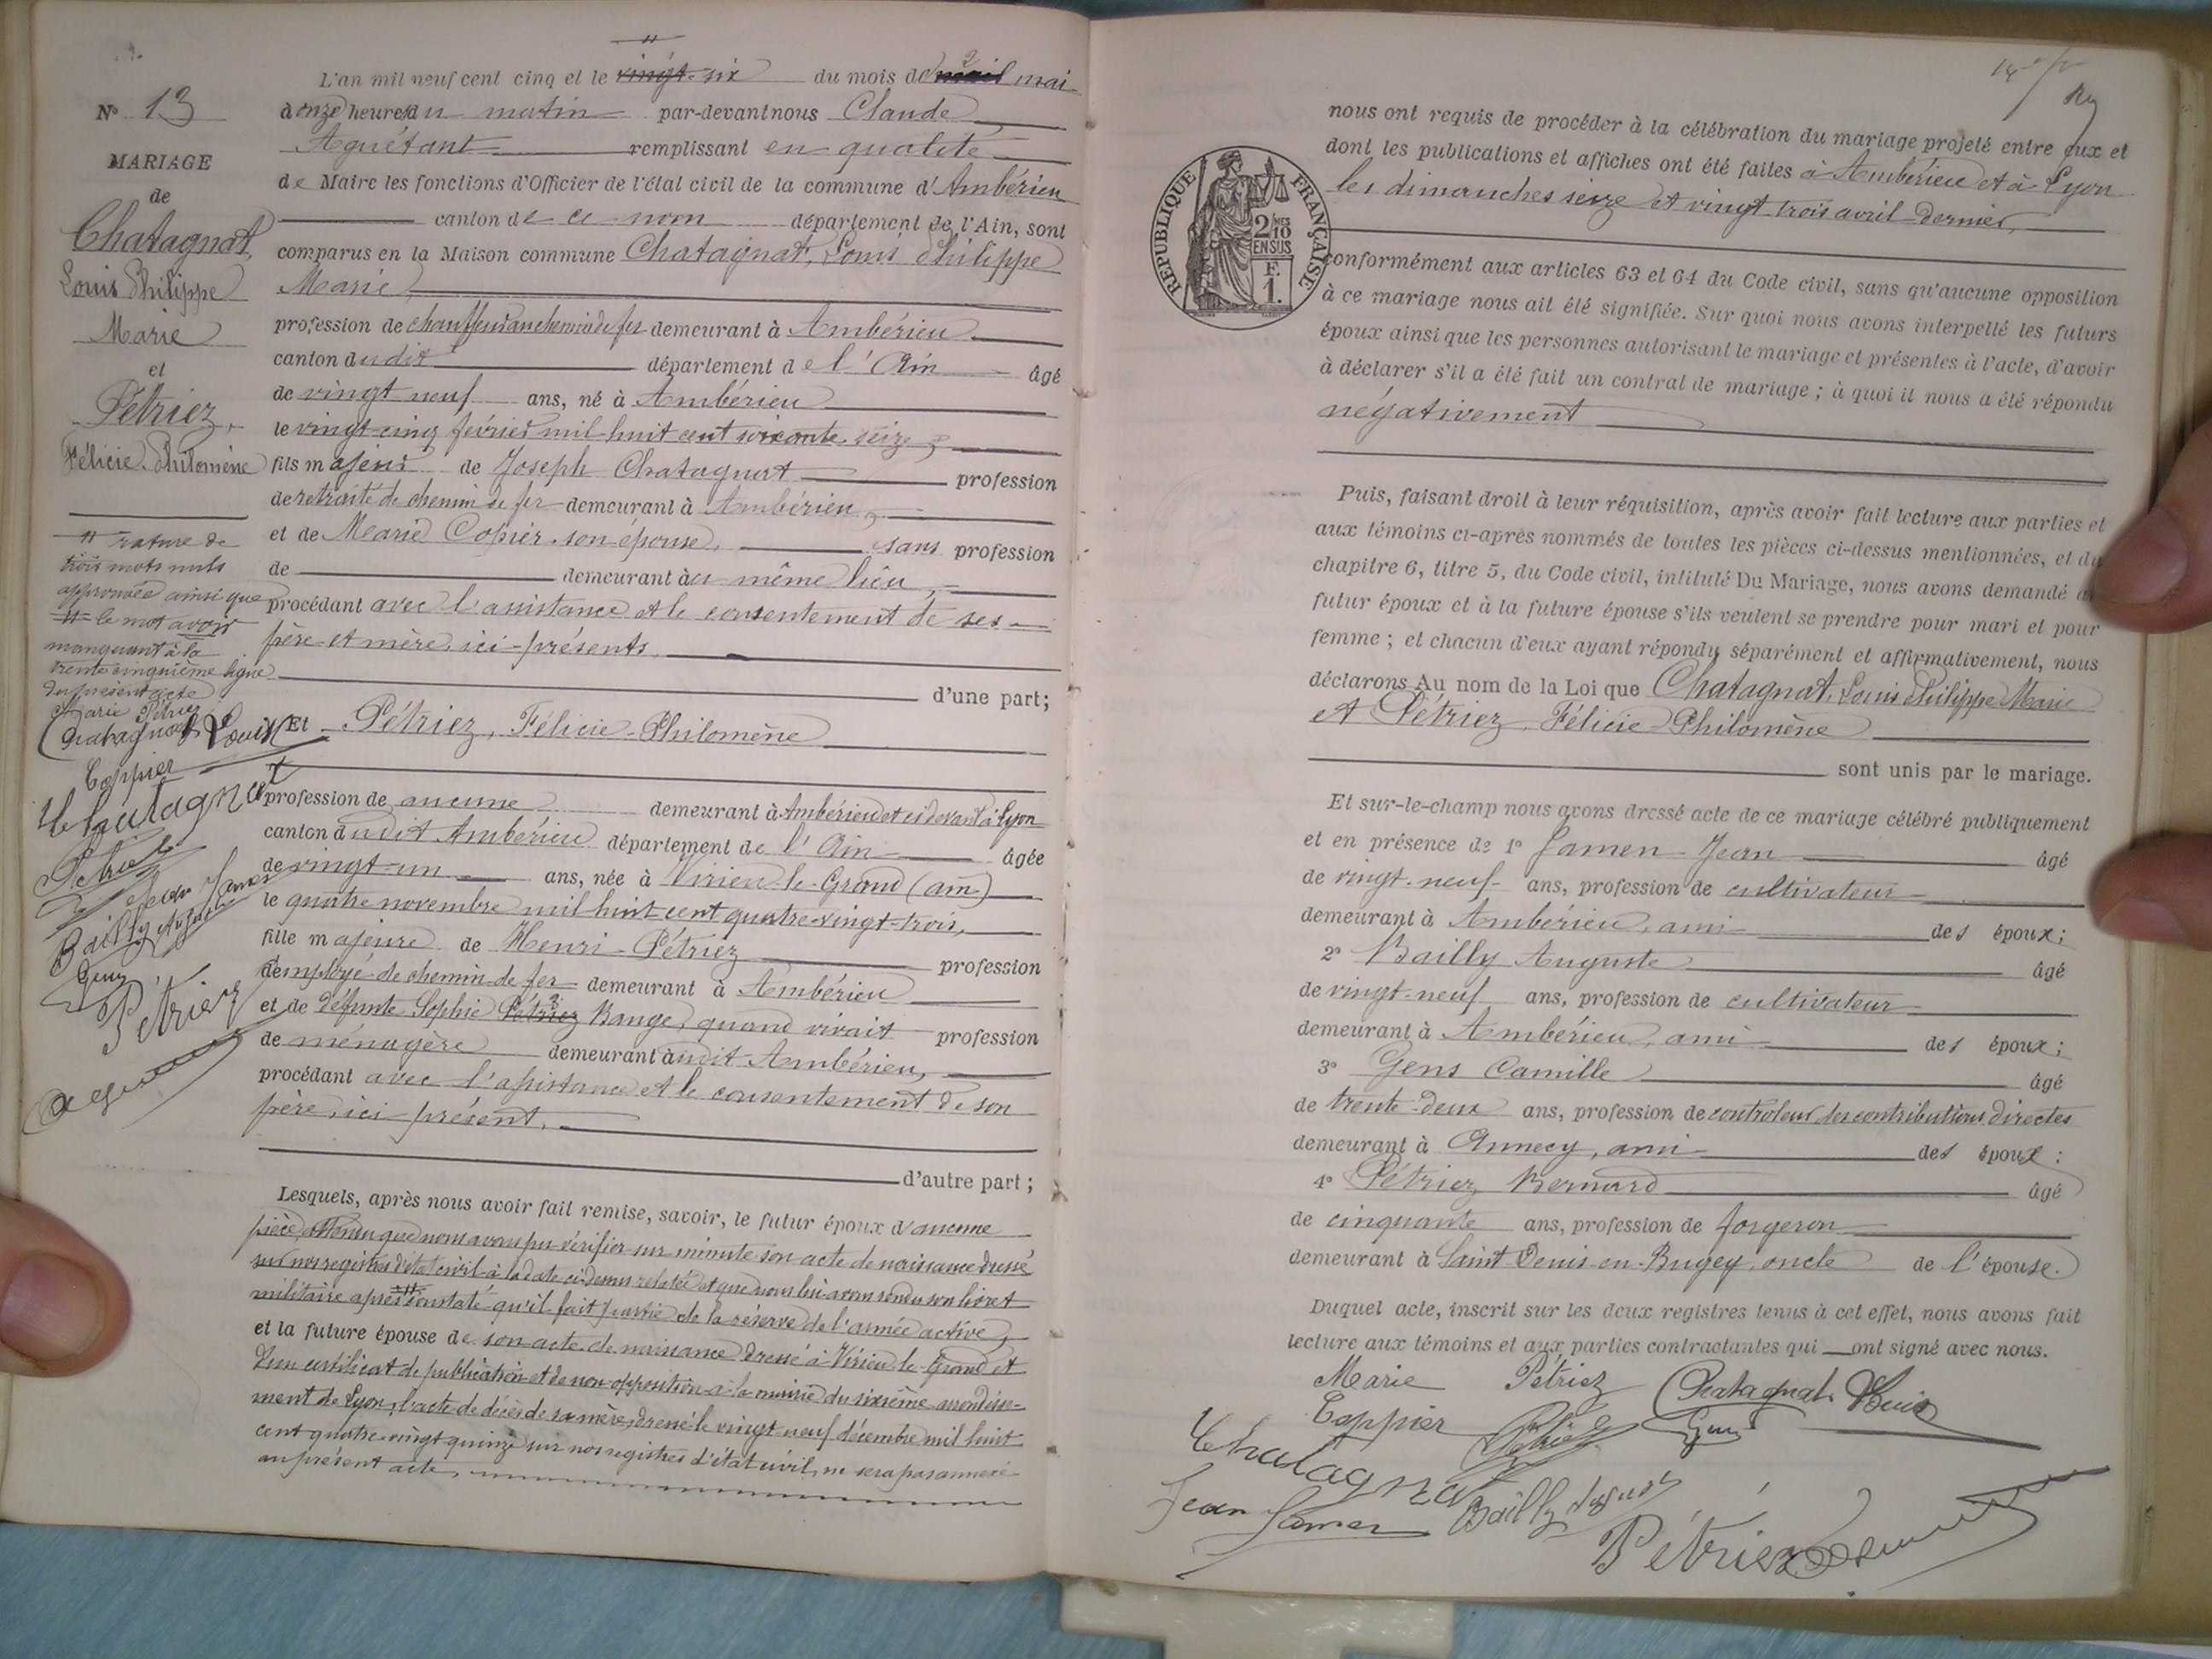 N° 13
MARIAGE
de
Chatagnat,
Louis Philippe
Marie
et
Pétriez,
Félicie Philomène
" rature de
trois mots nuls
approuvée ainsi que
" le mot avoir
manquant à la
trente cinquième ligne
du présent acte
Marie Pétriez
Chatagnat Louis
Coppier
Chatagnat
Jean Jamen
Bailly Auguste
Gens
Pétriez
"
L'an mil neuf cent cinq et le vingt-six du mois de mai
à onze heures du matin par-devant nous Claude
Aguétant remplissant en qualité
de Maire les fonctions d'Officier de l'état civil de la commune d'Ambérieu
canton de ce nom département de l'Ain, sont
comparus en la Maison commune Chatagnat, Louis Philippe
Marie,
profession de chauffeur au chemin de fer demeurant à Ambérieu
canton dudit département de l'Ain âgé
de vingt neuf ans, né à Ambérieu
le vingt-cinq février mil huit cent soixante seize,
fils majeur de Joseph Chatagnat profession
de retraité de chemin de fer demeurant à Ambérieu,
et de Marie Copier son épouse, sans profession
de demeurant au même lieu,
procédant avec l'assistance et le consentement de ses
père et mère, ici présents,
d'une part;
Et Pétriez, Félicie Philomène
profession de aucune demeurant à Ambérieu et ci devant à Lyon
canton dudit Ambérieu département de l'Ain âgée
de vingt-un ans, née à Virieu-le-Grand (Ain)
le quatre novembre mil huit cent quatre-vingt-trois,
fille majeure de Henri Pétriez profession
d'employé de chemin de fer demeurant à Ambérieu
et de défunte Sophie Pétriez Bange, quand vivait profession
de ménagère demeurant audit Ambérieu,
procédant avec l'assistance et le consentement de son
père, ici présent,
d'autre part;
Lesquels, après nous avoir fait remise, savoir, le futur époux d'aucune
pièce, attendu que nous avons pu vérifier sur minute son acte de naissance dressé
sur nos registres d'état civil à la date ci-dessus relatée et que nous lui avons rendu son livret
militaire après " constaté qu'il fait partie de la réserve de l'armée active,
et la future épouse de son acte de naissance dressé à Virieu-le-Grand et
d'un certificat de publication et de non opposition à la mairie du sixième arrondisse-
ment de Lyon, l'acte de décès de sa mère, dressé le vingt-neuf décembre mil huit
cent quatre-vingt quinze sur nos registres d'état civil, ne sera pas annexé
au présent acte,
nous ont requis de procéder à la célébration du mariage projeté entre eux et
dont les publications et affiches ont été faites à Ambérieu et à Lyon
les dimanches seize et vingt-trois avril dernier,
RÉPUBLIQUE FRANÇAISE
2 MES
10
EN SUS
F.
1.
conformément aux articles 63 et 64 du Code civil, sans qu'aucune opposition
à ce mariage nous ait été signifiée. Sur quoi nous avons interpellé les futurs
époux ainsi que les personnes autorisant le mariage et présentes à l'acte, d'avoir
à déclarer s'il a été fait un contrat de mariage; à quoi il nous a été répondu
négativement
Puis, faisant droit à leur réquisition, après avoir fait lecture aux parties et
aux témoins ci-après nommés de toutes les pièces ci-dessus mentionnées, et du
chapitre 6, titre 5, du Code civil, intitulé Du Mariage, nous avons demandé
futur époux et à la future épouse s'ils veulent se prendre pour mari et pour
femme; et chacun d'eux ayant répondu séparément et affirmativement, nous
déclarons Au nom de la Loi que Chatagnat, Louis Philippe Marie
et Pétriez, Félicie Philomène
sont unis par le mariage.
Et sur-le-champ nous avons dressé acte de ce mariage célébré publiquement
et en présence de 1° Jamen Jean âgé
de vingt-neuf ans, profession de cultivateur
demeurant à Ambérieu, ami des époux;
2° Bailly Auguste âgé
de vingt-neuf ans, profession de cultivateur
demeurant à Ambérieu, ami des époux;
3° Gens Camille âgé
de trente-deux ans, profession de controleur des contributions directes
demeurant à Annecy, ami des époux;
4° Pétriez Bernard âgé
de cinquante ans, profession de forgeron
demeurant à Saint Denis-en-Bugey, oncle de l'épouse.
Duquel acte, inscrit sur les deux registres tenus à cet effet, nous avons fait
lecture aux témoins et aux parties contractantes qui ont signé avec nous.
Marie Pétriez Chatagnat Louis
Coppier Gens
Chatagnat
Jean Jamen Bailly Auguste
Pétriez